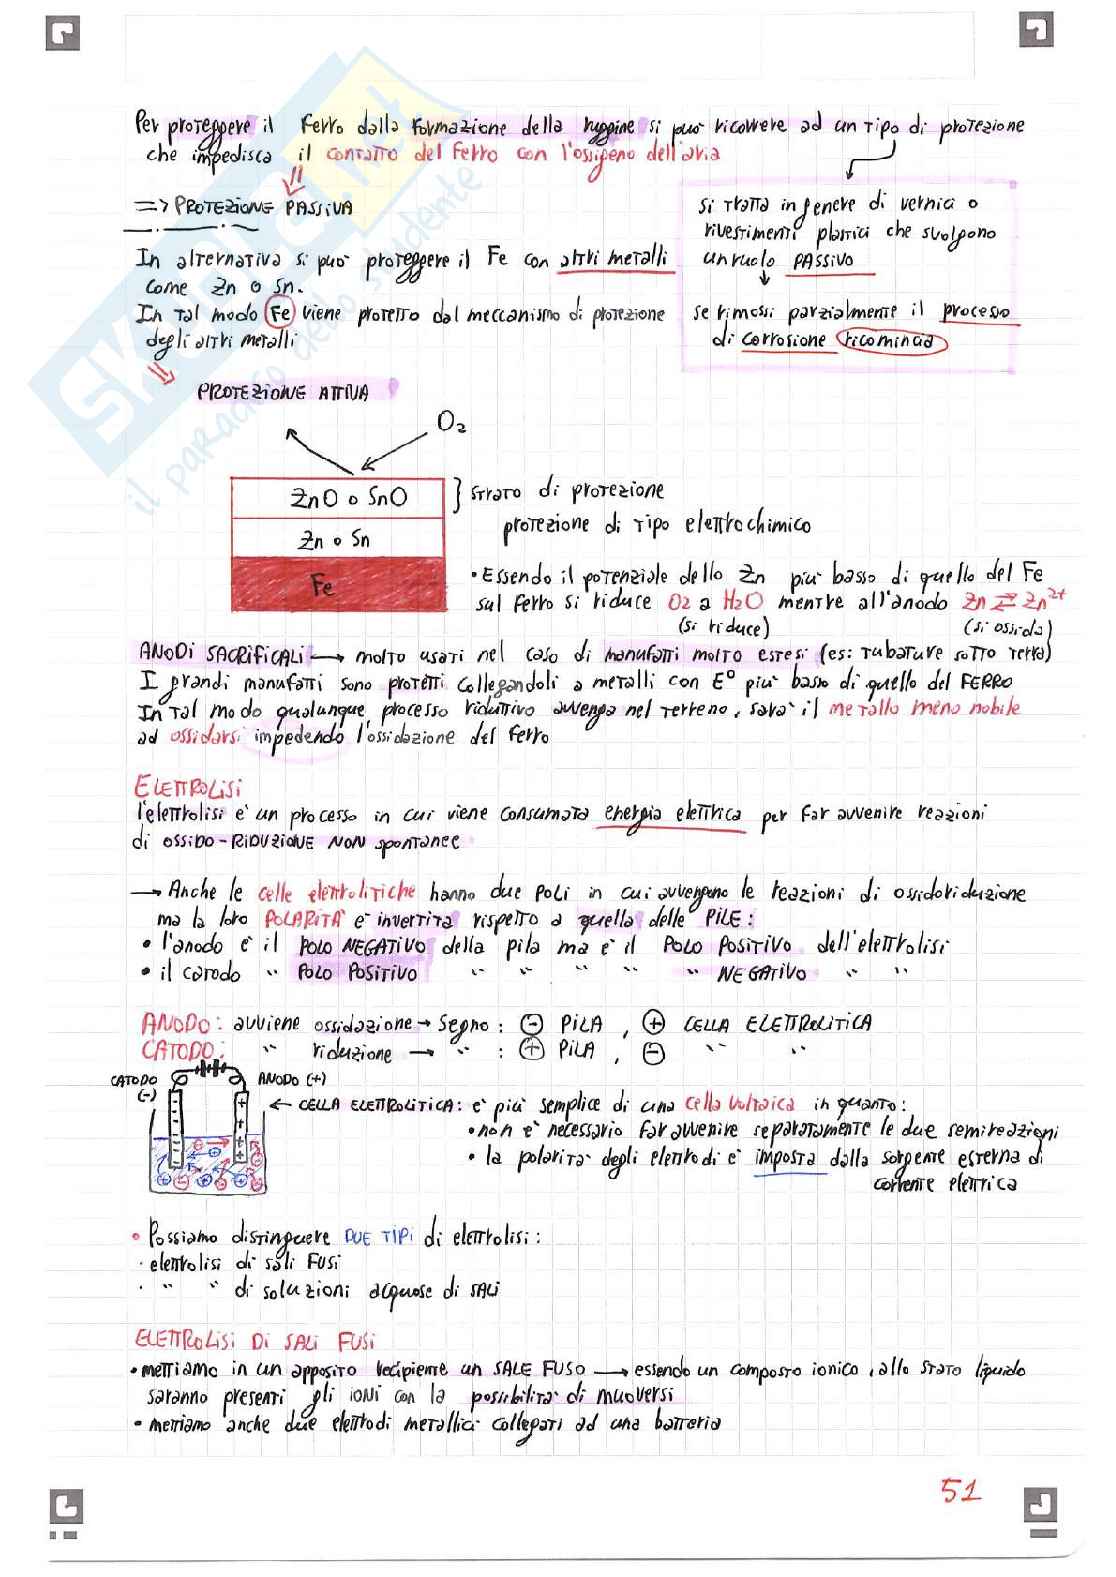 Per proteggere il ferro dalla formazione della ruggine si può ricorrere ad un tipo di protezione
che impedisca il contatto del ferro con l'ossigeno dell'aria
=> PROTEZIONE PASSIVA
si tratta in genere di vernici o
rivestimenti plastici che svolgono
un ruolo PASSIVO
se rimossi parzialmente il processo
di corrosione ricomincia
In alternativa si può proteggere il Fe con altri metalli
come Zn o Sn.
In tal modo Fe viene protetto dal meccanismo di protezione
degli altri metalli
PROTEZIONE ATTIVA
O2
ZnO o SnO
Zn o Sn
Fe
} strato di protezione
protezione di tipo elettrochimico
• Essendo il potenziale dello Zn più basso di quello del Fe
sul ferro si riduce O2 a H2O mentre all'anodo Zn ⇄ Zn2+
(si riduce) (si ossida)
ANODI SACRIFICALI → molto usati nel caso di manufatti molto estesi (es: tubature sotto terra)
I grandi manufatti sono protetti collegandoli a metalli con E° più basso di quello del FERRO
In tal modo qualunque processo riduttivo avvenga nel terreno, sarà il metallo meno nobile
ad ossidarsi impedendo l'ossidazione del ferro
ELETTROLISI
l'elettrolisi è un processo in cui viene consumata energia elettrica per far avvenire reazioni
di OSSIDO-RIDUZIONE NON spontanee
→ Anche le celle elettrolitiche hanno due poli in cui avvengono le reazioni di ossidoriduzione
ma la loro POLARITÀ è invertita rispetto a quella delle PILE:
• l'anodo è il POLO NEGATIVO della pila ma è il POLO POSITIVO dell'elettrolisi
• il catodo " POLO POSITIVO " " " " " NEGATIVO " "
ANODO: avviene ossidazione → segno: ⊖ PILA, ⊕ CELLA ELETTROLITICA
CATODO: " riduzione → " : ⊕ PILA, ⊖ " "
CATODO (-)
ANODO (+)
← CELLA ELETTROLITICA: è più semplice di una cella voltaica in quanto:
• non è necessario far avvenire separatamente le due semireazioni
• la polarità degli elettrodi è imposta dalla sorgente esterna di
corrente elettrica
• Possiamo distinguere DUE TIPI di elettrolisi:
· elettrolisi di sali FUSI
· " " di soluzioni acquose di SALI
ELETTROLISI DI SALI FUSI
• mettiamo in un apposito recipiente un SALE FUSO → essendo un composto ionico, allo stato liquido
saranno presenti gli IONI con la possibilità di muoversi
• mettiamo anche due elettrodi metallici collegati ad una batteria
51
SKUOLA.net
il paradiso dello studente